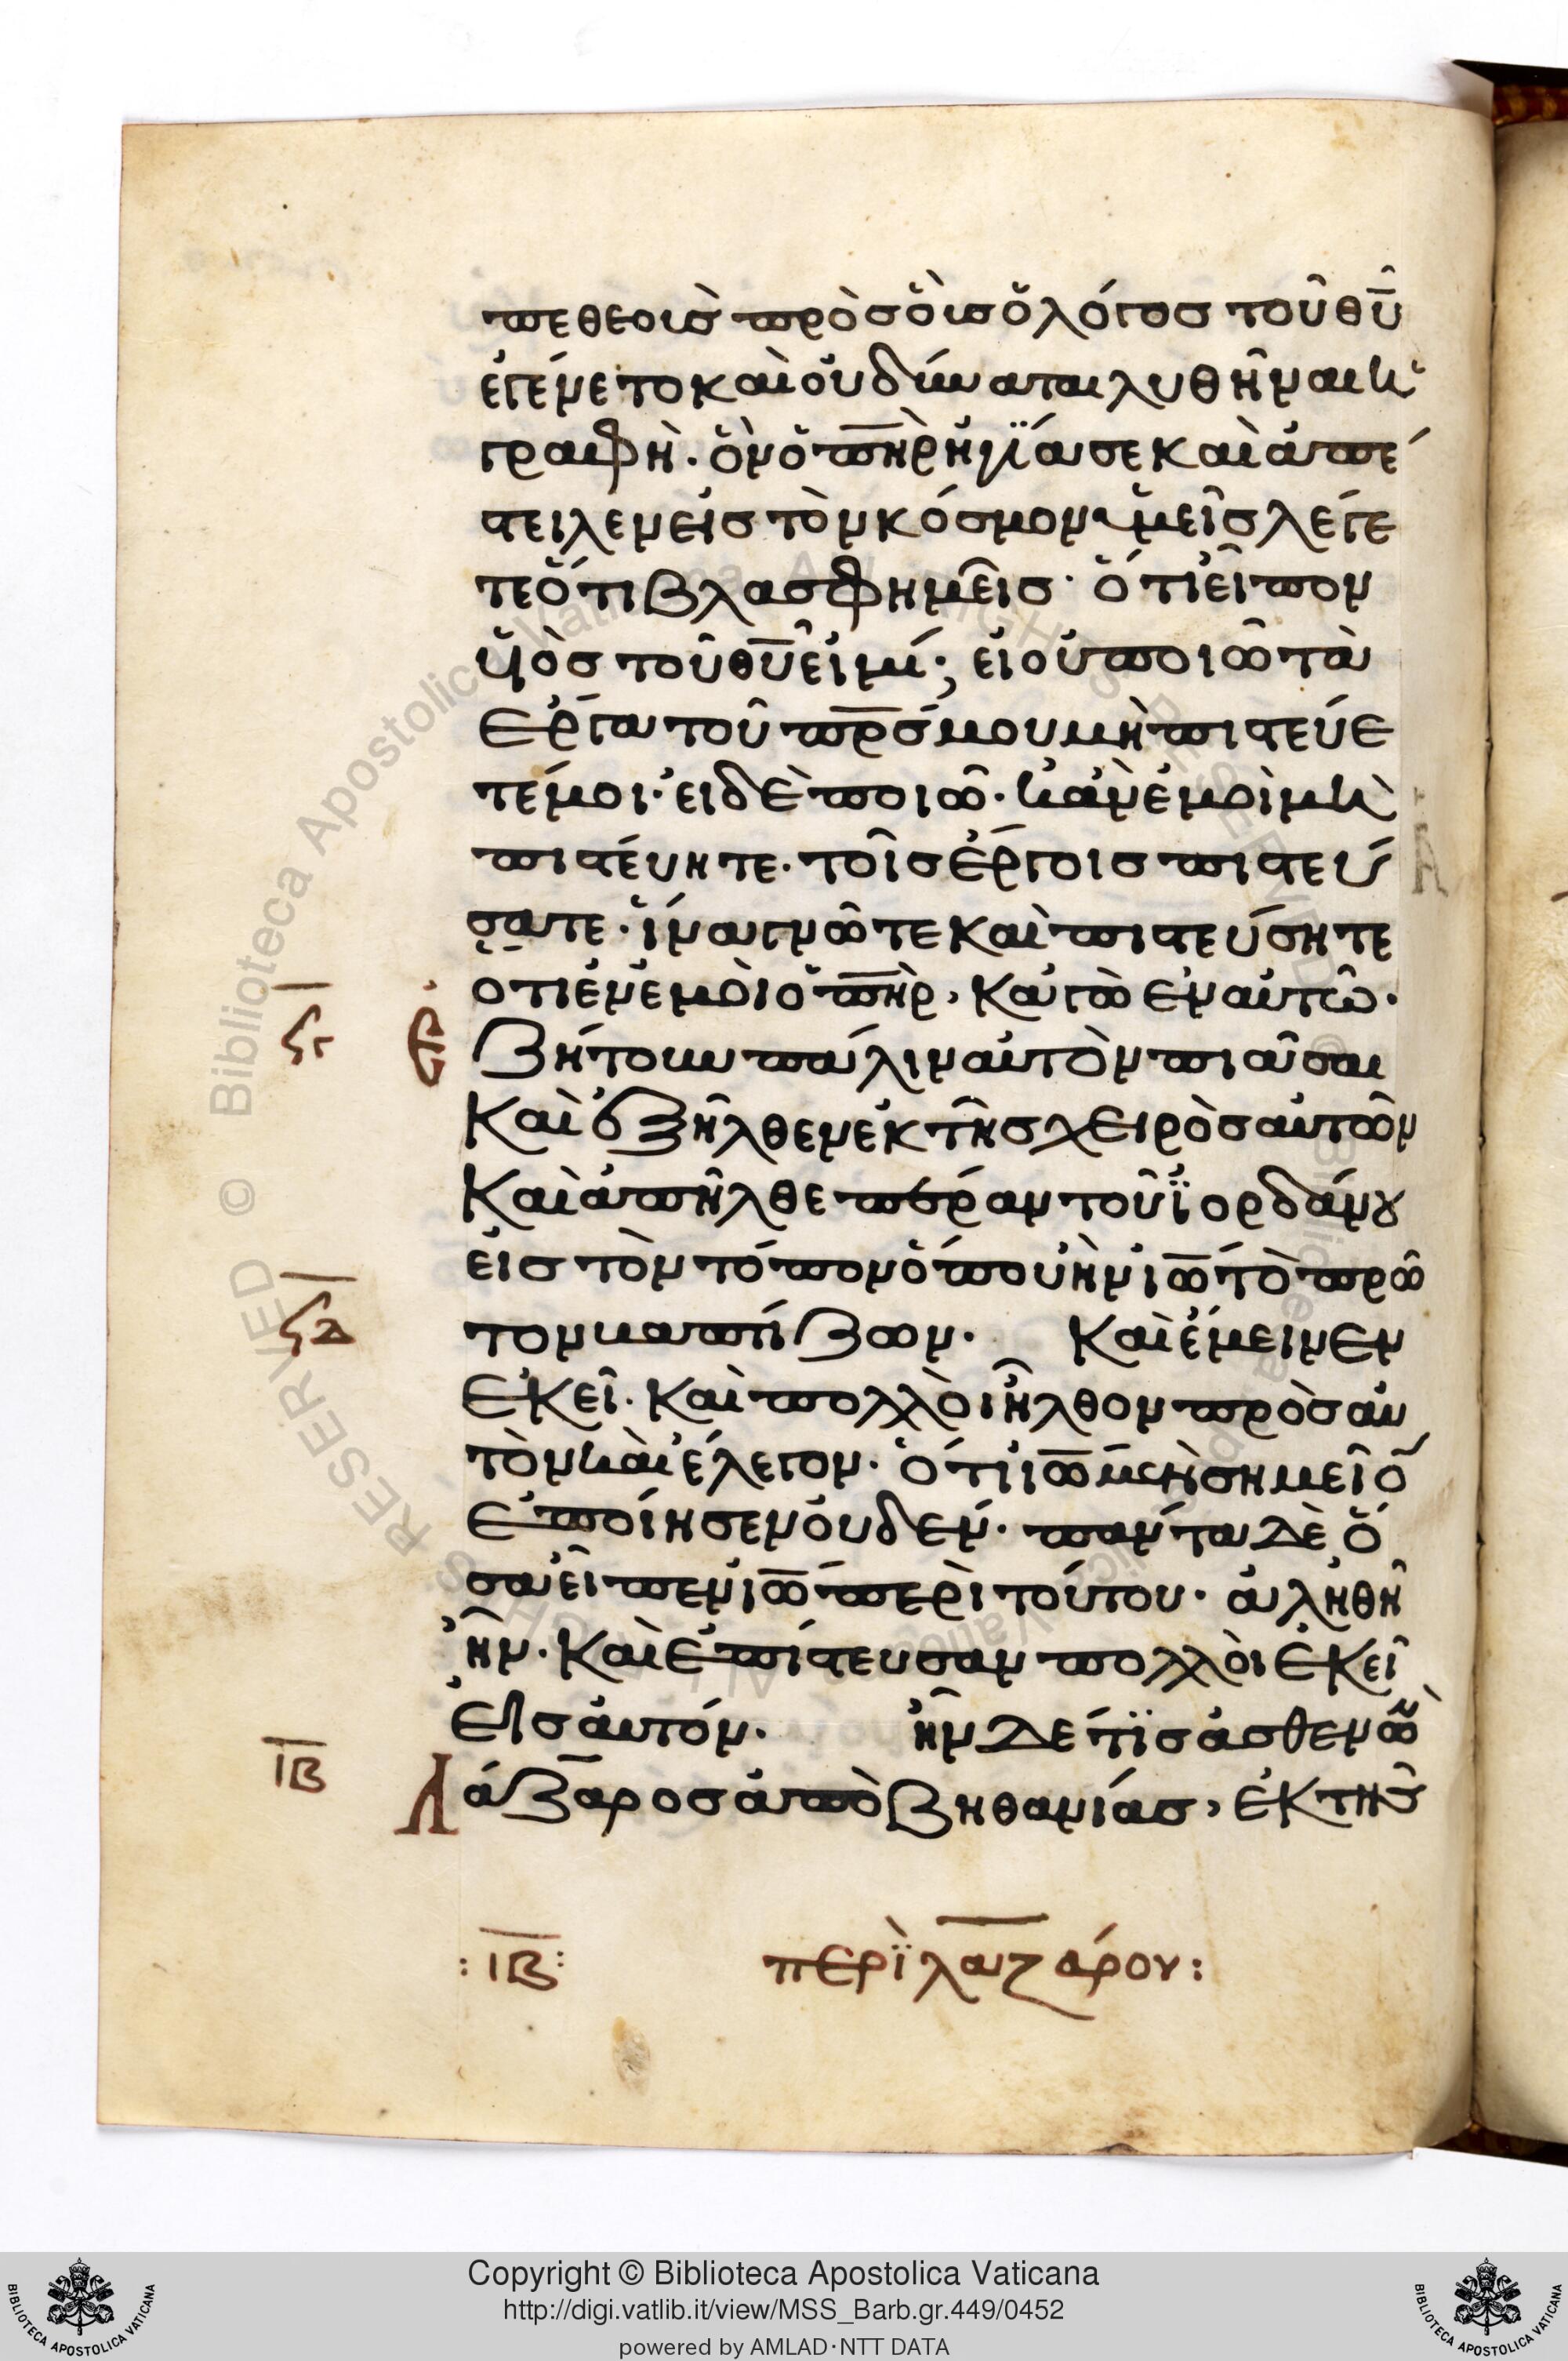 πε θεοὺς πρὸς οὓς ὁ λόγος τοῦ θ̅υ̅
ἐγένετο καὶ οὐ δύναται λυθῆναι ἡ
γραφὴ· ὃν ὁ π̅η̅ρ̅ ἡγίασε καὶ ἀπέ
στειλεν εἰς τὸν κόσμον ὑμεῖς λέγε
τε ὅτι βλασφημεῖς· ὅτι εἶπον
υἱὸς τοῦ θ̅υ̅ εἰμί; εἰ οὐ ποιῶ τὰ
ἔργα τοῦ π̅ρ̅ς̅ μου μὴ πιστεύε
τέ μοι· εἰ δὲ ποιῶ· κἂν ἐμοὶ μὴ
πιστεύητε· τοῖς ἔργοις πιστεύ
σατε· ἵνα γνῶτε καὶ πιστεύσητε
ὅτι ἐν ἐμοὶ ὁ π̅η̅ρ̅, κἀγὼ ἐν αὐτῶ·
Ϟγ Ζήτουν πάλιν αὐτὸν πιᾶσαι
καὶ ἐξῆλθεν ἐκ τῆς χειρὸς αὐτῶν
καὶ ἀπῆλθε πέραν τοῦ ἰορδάνου
εἰς τὸν τόπον ὅπου ἦν ἰ̅ω̅ τὸ πρῶ
Ϟδ τον βαπτίζων· καὶ ἔμεινεν
ἐκεῖ· καὶ πολλοὶ ἦλθον πρὸς αὐ
τὸν καὶ ἔλεγον· ὅτι ἰ̅ω̅ μὲν σημεῖο̅
ἐποίησεν οὐδέν· πάντα δὲ ὅ
σα εἶπεν ἰ̅ω̅ περὶ τούτου· ἀληθῆ
ἦν· καὶ ἐπίστευσαν πολλοὶ ἐκεῖ
εἰς αὐτόν· ἦν δέ τις ἀσθενῶν
Ι̅Β̅ Λάζαρος ἀπὸ βηθανίας, ἐκ τῆς
: Ι̅Β̅ : περὶ λαζάρου:
Copyright © Biblioteca Apostolica Vaticana
http://digi.vatlib.it/view/MSS_Barb.gr.449/0452
powered by AMLAD·NTT DATA